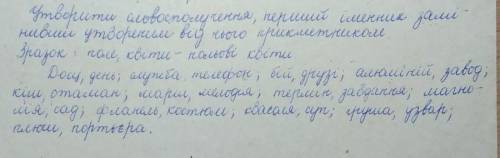 Утворити словосполучення, перший іменник замі-
нивши утвореним від нього прикметником
Зразок: поле, квіти - польові квіти
Дощ, день; служба, телефон; бій, друзі; алюміній, завод;
кіш, отаман; марш, мелодія; термін, завдання; магно-
лія, сад; фланель, костюм; квасоля, суп; груша, узвар;
плюш, портьєра.